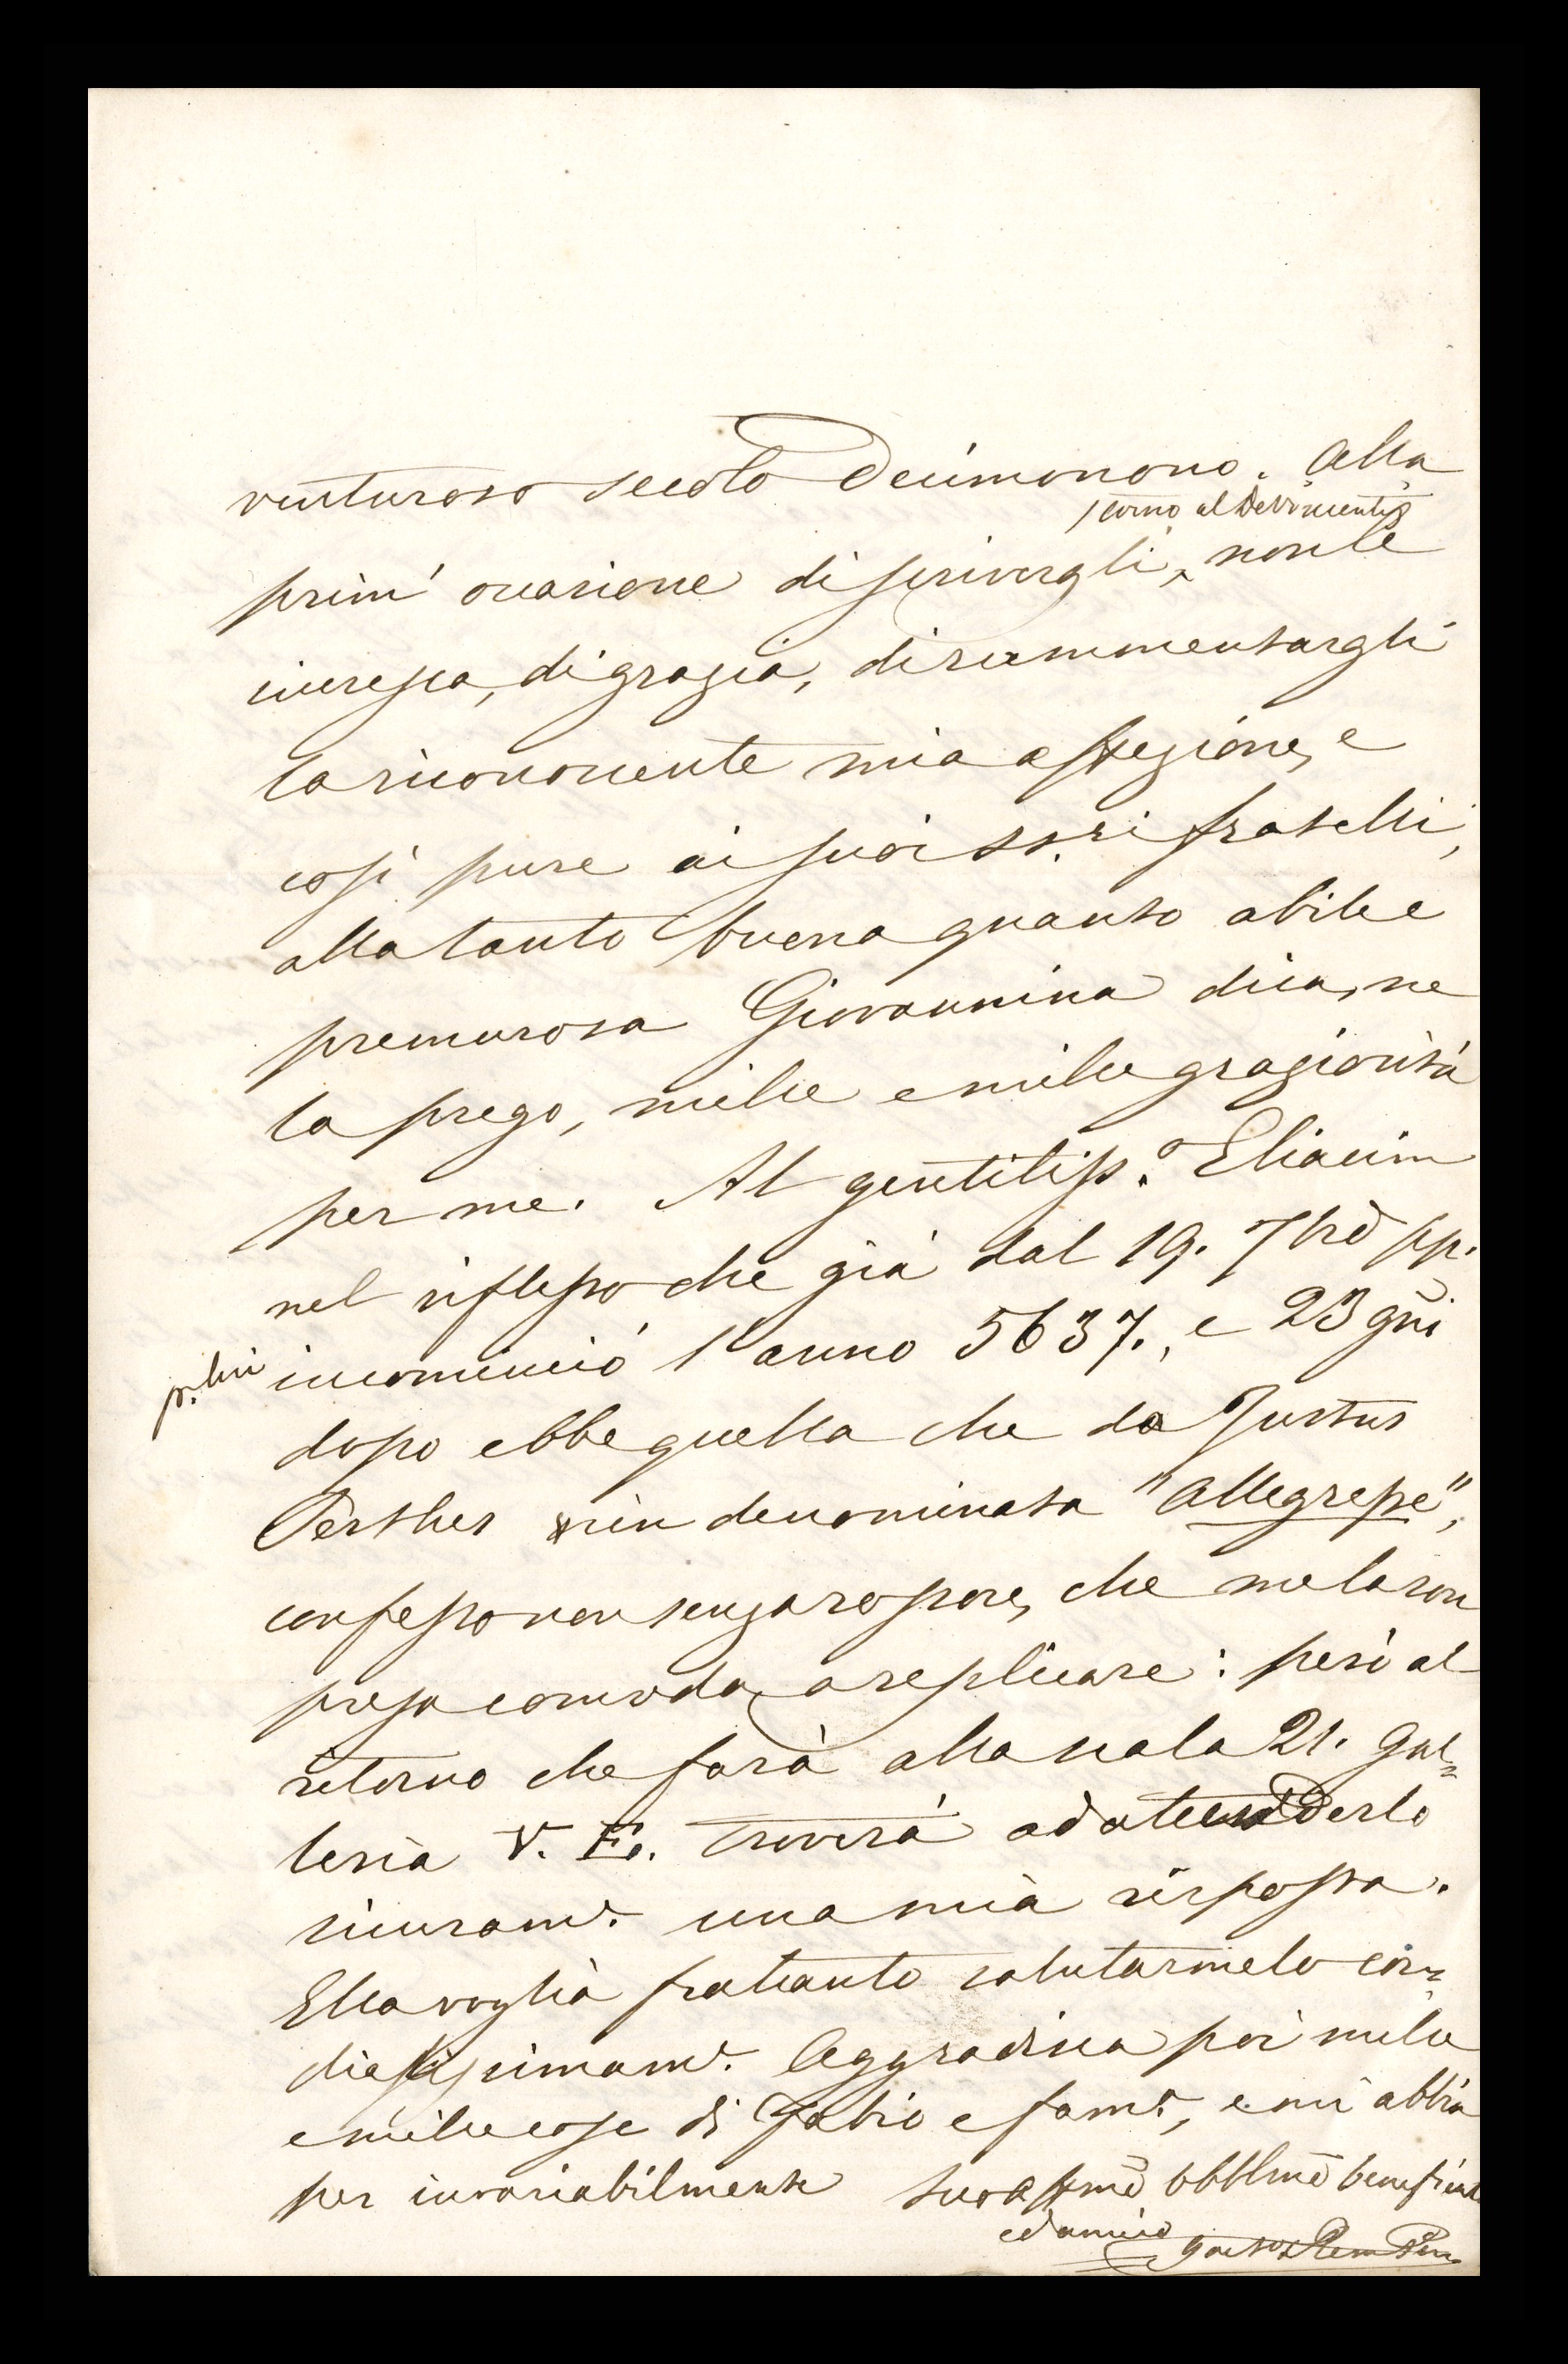 venturoso secolo Decimonono. Alla
prim' occasione di scrivergli, non le
incresca, di grazia, di rammentargli
la riconoscente mia affezione, e
così pure ai suoi SS.ri fratelli;
alla tanto buona quanto abile e
premurosa Giovannina dica, ne
la prego, mille e mille graziosità
per me. Al gentiliss.o Eliacim
nel riflesso che già dal 19. 7bre pp.
p.lini incominciò l'anno 5637., e 23 gni
dopo ebbe quella che da Justus
Perthes vien denominata "Allegresse",
confesso non senza rossore, che me la son
presa comoda a replicare: però al
ritorno che farà alla scala 21. Gal=
leria V. E. troverà ad attenderlo
sicuram.e una mia risposta.
Ella voglia frattanto salutarmelo cor=
dialissimam.e Aggradisca poi mille
e mille cose di Fabio e fam.a, e mi abbia
per invariabilmente Suo affmo obblmo
ed amico